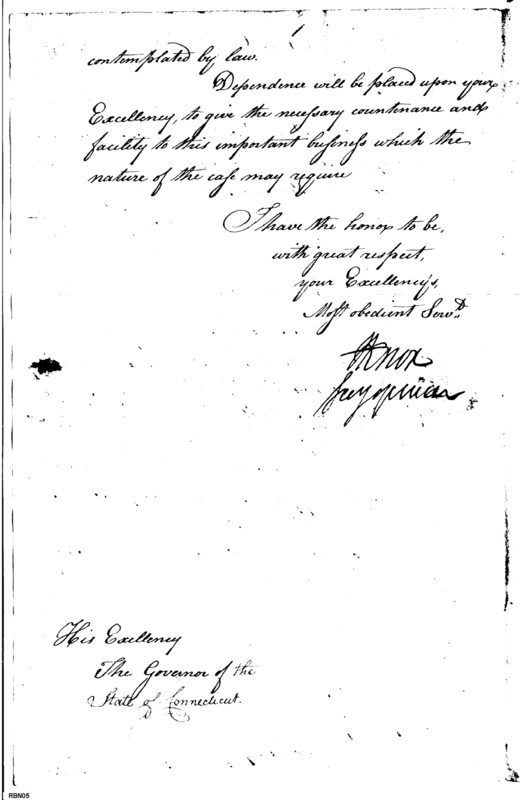 contemplated by law.
Dependence will be placed upon your
Excellency, to give the necessary countenance and
facility to this important business which the
nature of the case may require
I have the honor to be,
with great respect,
your Excellency's,
Most obedient Servt.
HKnox
secy of war
His Excellency
The Governor of the
State of Connecticut.
RBN05